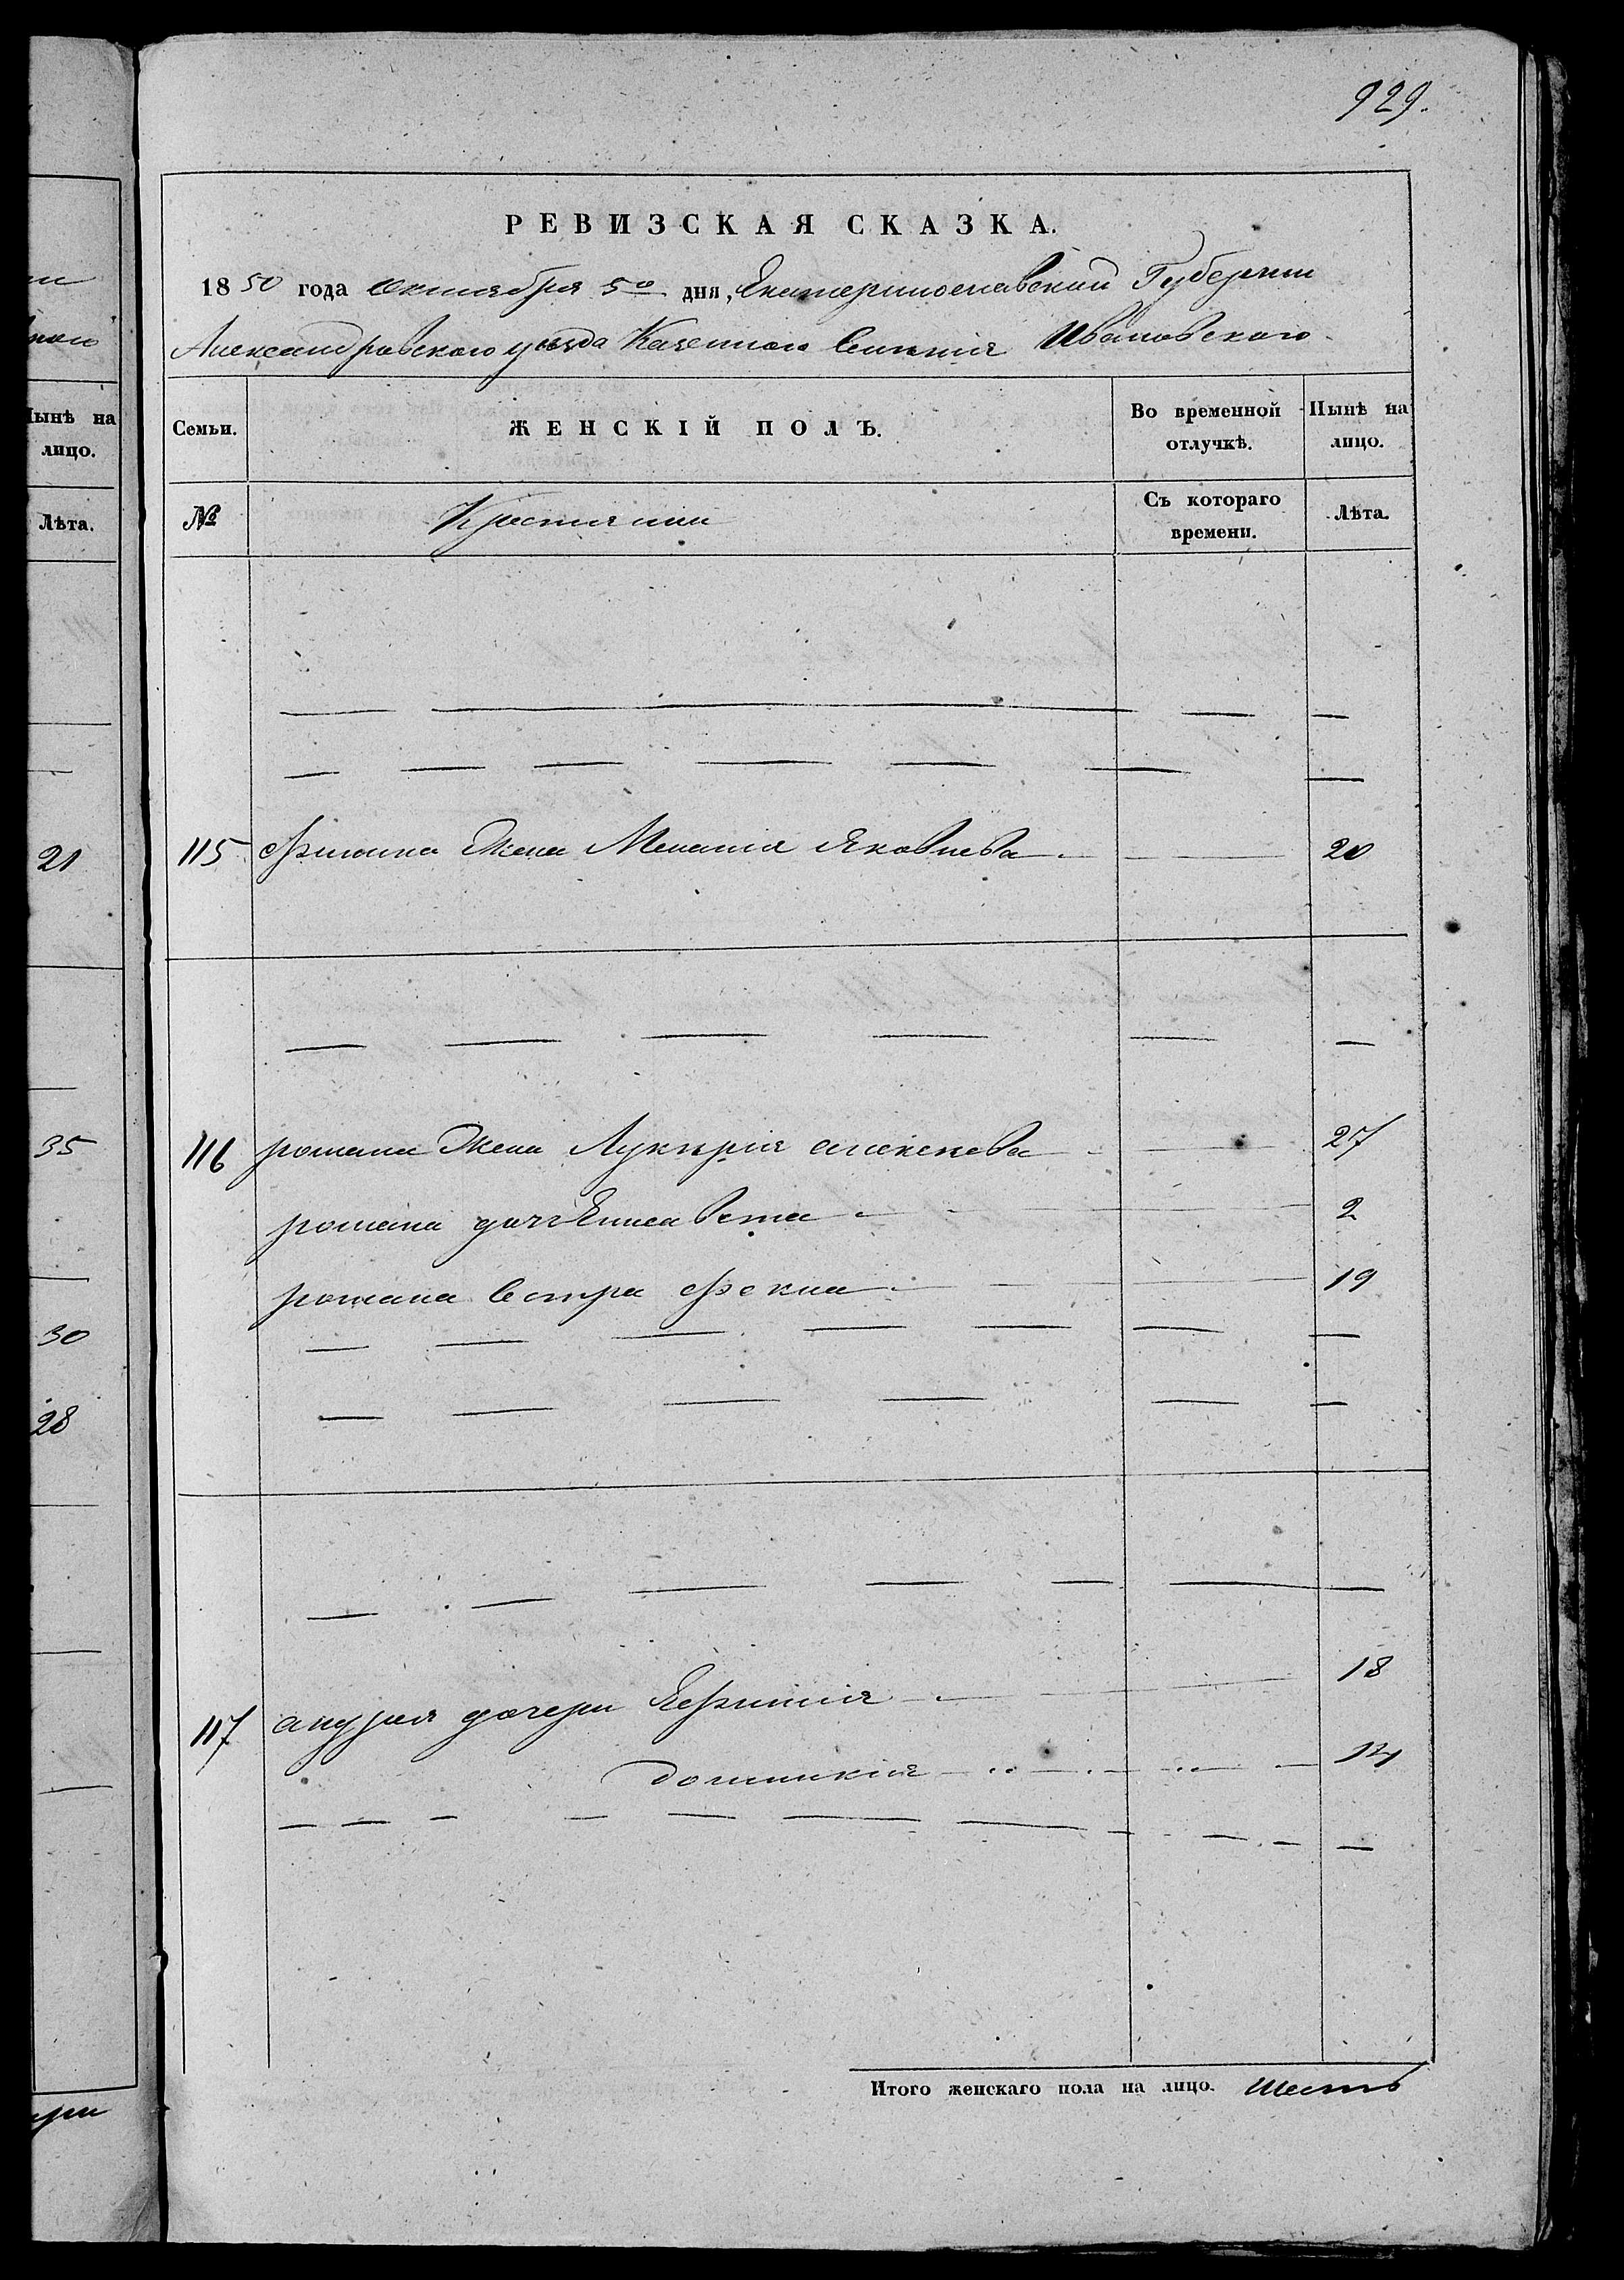 929.
РЕВИЗСКАЯ СКАЗКА.
1850 года Октября 5го дня, Екатеринославской Губернии
Александровского уезда Казенного Селения Ивановского
Семьи. ЖЕНСКІЙ ПОЛЪ. Во временной отлучкѣ. Нынѣ на лицо.
№ Крестьянии Съ котораго времени. Лѣта.
115 жена Меланія Яковлева 20
116 романа жена Лукерія алексеева 27
романа дочь Елисавета 2
романа сестра Фекла 19
117 андрея дочери Ефимія 18
домникія 14
Итого женскаго пола на лицо. Шесть
Нынѣ на
лицо.
Лѣта.
21
35
30
28